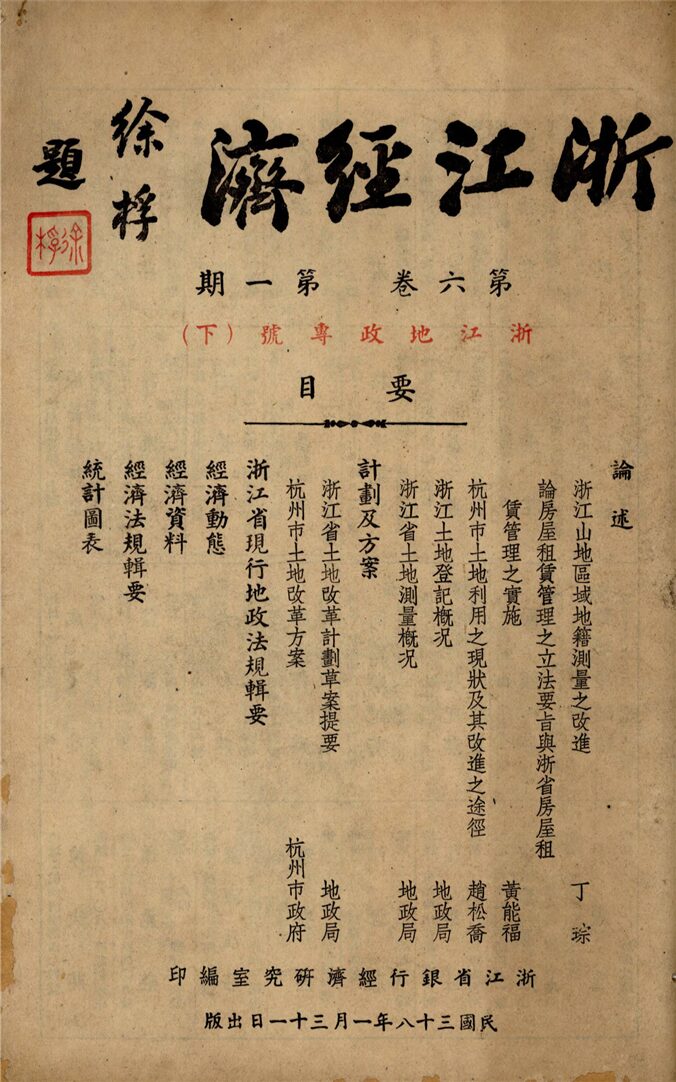 浙江經濟
徐桴
題
徐桴
第六卷 第一期
浙江地政專號(下)
要目
論述
浙江山地區域地籍測量之改進 丁琮
論房屋租賃管理之立法要旨與浙省房屋租
賃管理之實施 黃能福
杭州市土地利用之現狀及其改進之途徑 趙松喬
浙江土地登記概况 地政局
浙江省土地測量概况 地政局
計劃及方案
浙江省土地改革計劃草案提要 地政局
杭州市土地改革方案 杭州市政府
浙江省現行地政法規輯要
經濟動態
經濟資料
經濟法規輯要
統計圖表
浙江省銀行經濟研究室編印
民國三十八年一月三十一日出版